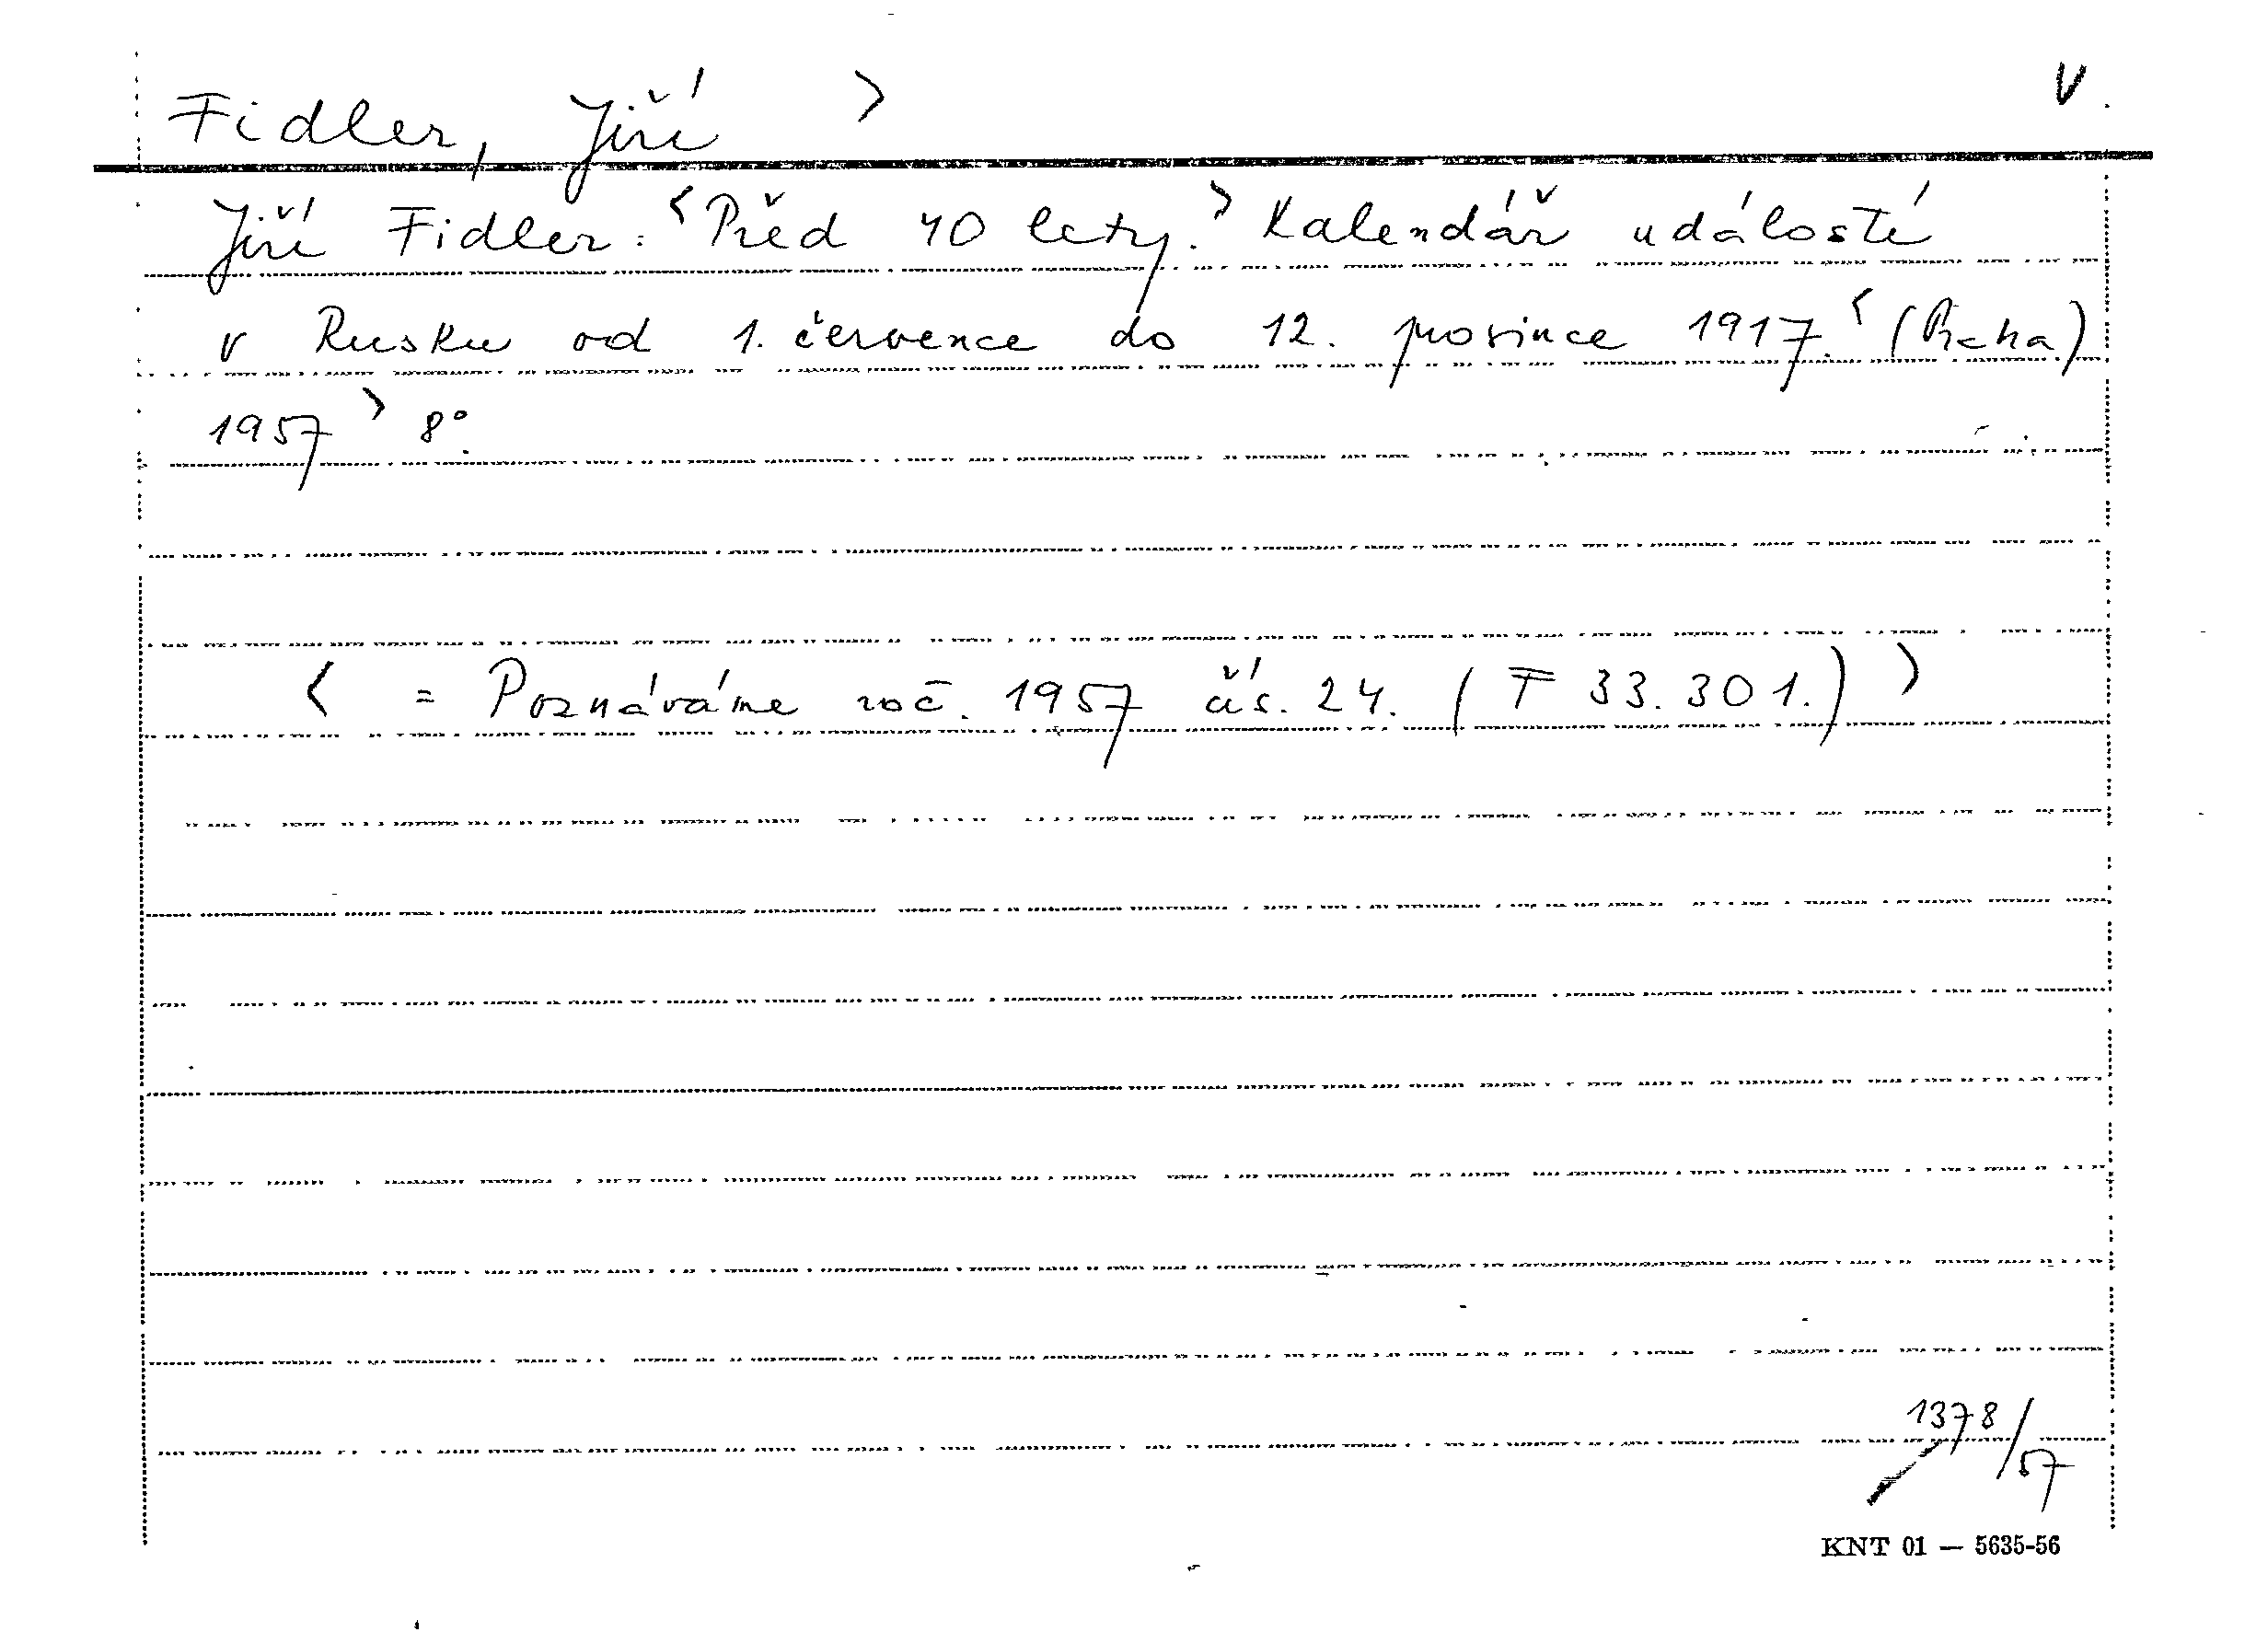 Fidler, Jiří > V.
Jiří Fidler: <Před 40 lety.> Kalendář událostí
v Rusku od 1. července do 12. prosince 1917.< (Praha)
1957 > 8°.
< = Poznáváme roč. 1957 čís. 24. (F 33.301.) >
1378/57
KNT 01 — 5635-56